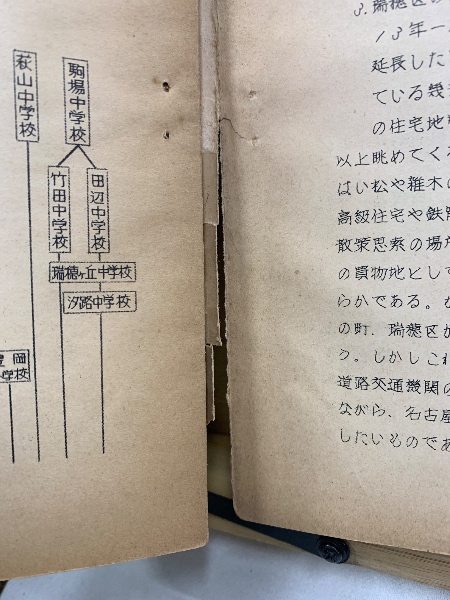 萩山中学校
駒場中学校
竹田中学校
田辺中学校
瑞穂ヶ丘中学校
汐路中学校
豊岡
学校
3.瑞穂区
13年一
延長した
ている幾
の住宅地
以上眺めてくる
はい松や雑木の
高級住宅や鉄
散策思索の場所
の貨物地として
らかである。
の町、瑞穂区が
う。しかしこれ
道路交通機関の
ながら、名古屋
したいものであ